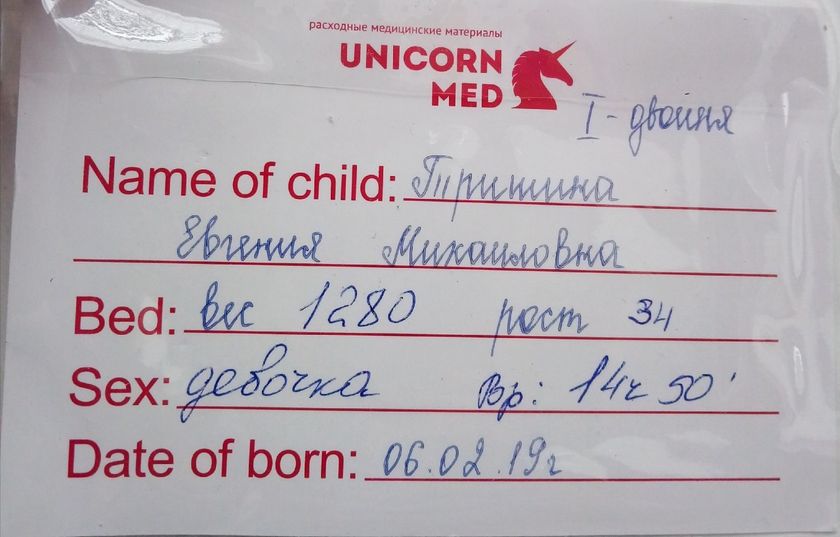 расходные медицинские материалы
UNICORN
MED
I - двойня
Name of child: Тришина
Евгения Михайловна
Bed: вес 1280 рост 34
Sex: девочка Вр: 14ч 50'
Date of born: 06.02.19г